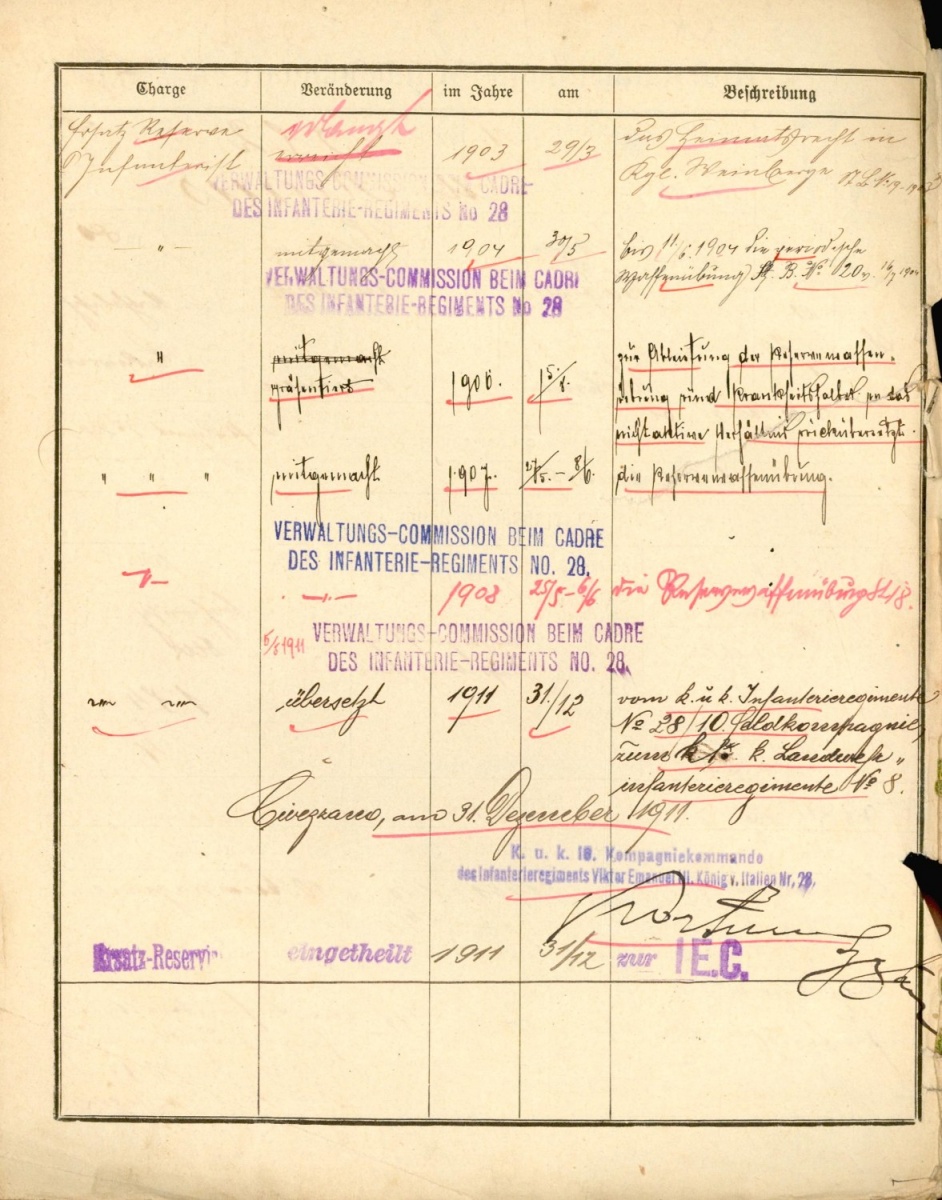 Charge Veränderung im Jahre am Beschreibung
Ersatz Reserve erlangt das Heimatsrecht in
Infanterist erreicht 1903 29/3 Kgl. Weinberge
VERWALTUNGS-COMMISSION BEIM CADRE
DES INFANTERIE-REGIMENTS No 28
" mitgemacht 1904 30/5 bis 11/6 1904 die periodische
Waffenübung B. No 20
VERWALTUNGS-COMMISSION BEIM CADRE
DES INFANTERIE-REGIMENTS No 28
" mitgemacht zur Ableistung der Reservewaffen-
präsentiert 1906. 15/8. übung und krankheitshalber in das
nichtaktive Verhältnis rückübersetzt.
" " " mitgemacht 1907. 27/5. – 8/6. die Reservewaffenübung.
VERWALTUNGS-COMMISSION BEIM CADRE
DES INFANTERIE-REGIMENTS NO. 28.
-"- -"- 1908 25/5 – 6/6 die Reservewaffenübung
1911 VERWALTUNGS-COMMISSION BEIM CADRE
DES INFANTERIE-REGIMENTS NO. 28.
" " übersetzt 1911 31/12 vom k. u. k. Infanterieregimente
No 28/10. Feldkompagnie,
zum k. k. Landwehr„
infanterieregimente No 8.
Civezzano, am 31. Dezember 1911.
K. u. k. 10. Kompagniekommando
des Infanterieregiments Viktor Emanuel III. König v. Italien Nr. 28.
Ersatz-Reservist eingetheilt 1911 31/12 zur I E.C.